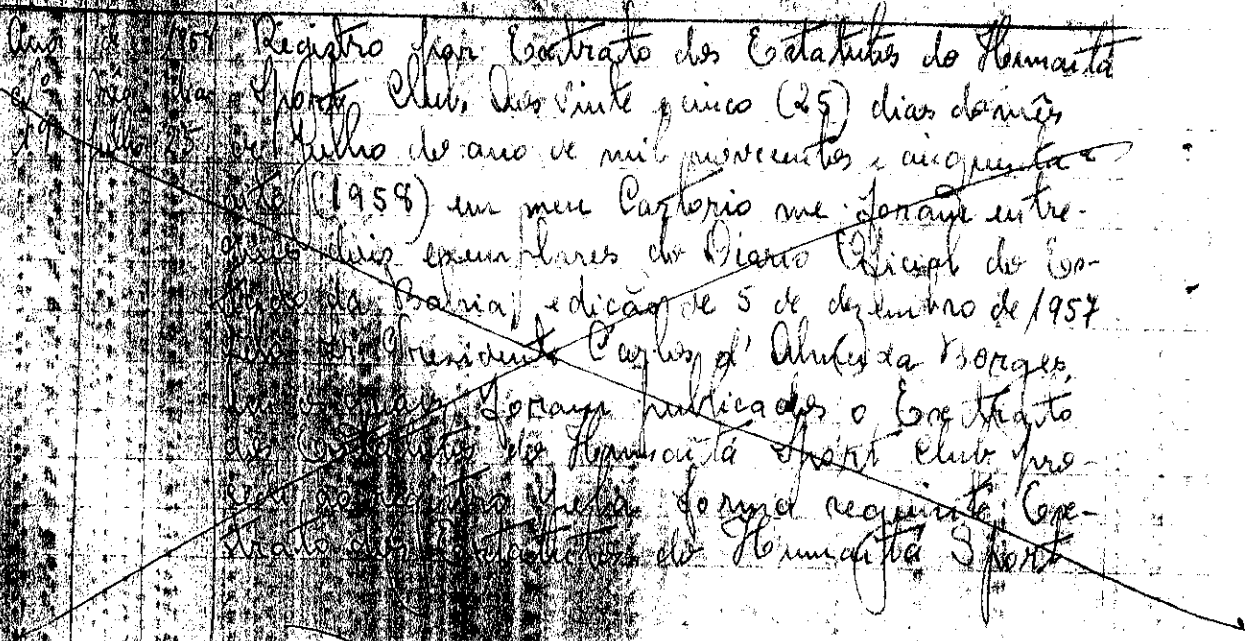 Ano de 1958 Registro por Extrato dos Estatutos do Humaitá
Sport Club. Aos vinte e cinco (25) dias do mês
Julho 25 de Julho do ano de mil novecentos e cinquenta e
oito (1958) em meu Cartorio me foram entre-
gues dois exemplares do Diario Oficial do Es-
tado da Bahia, edição de 5 de dezembro de 1957
pelo Sr Presidente Carlos d' Almeida Borges,
em os quais foram publicados o Extrato
dos Estatutos do Humaitá Sport Club, pro-
ao registro pela forma seguinte: Ex-
trato dos Estatutos do Humaitá Sport